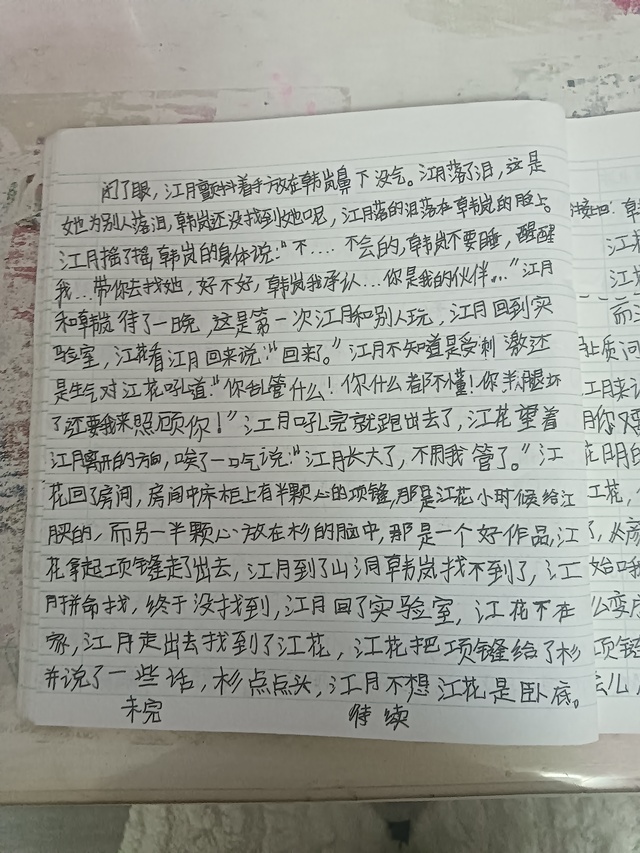 闭了眼，江月颤抖着手放在韩岚鼻下没气。江月落了泪，这是
她为别人落泪，韩岚还没找到她呢，江月落的泪落在韩岚的脸上。
江月摇了摇韩岚的身体说：“不....不会的，韩岚不要睡，醒醒
我...带你去找她，好不好，韩岚我承认...你是我的伙伴...”江月
和韩岚待了一晚，这是第一次江月和别人玩，江月回到实
验室，江花看江月回来说：“回来了。”江月不知道是受刺激还
是生气对江花吼道：“你乱管什么！你什么都不懂！你半腿坏
了还要我来照顾你！”江月吼完就跑出去了，江花望着
江月离开的方向，唉了一口气说：“江月长大了，不用我管了。”江
花回了房间，房间中床柜上有半颗心的项链，那是江花小时候给江
月的，而另一半颗心放在杉的脑中，那是一个好作品，江
花拿起项链走了出去，江月到了山洞韩岚找不到了，江
月拼命找，终于没找到，江月回了实验室，江花不在
家，江月走出去找到了江花，江花把项链给了杉
并说了一些话，杉点点头，江月不想江花是卧底。
未完 待续
江花
江
而
质问
江月来
月你又
花明的
江花，
了，从
始
么变
项链
么儿